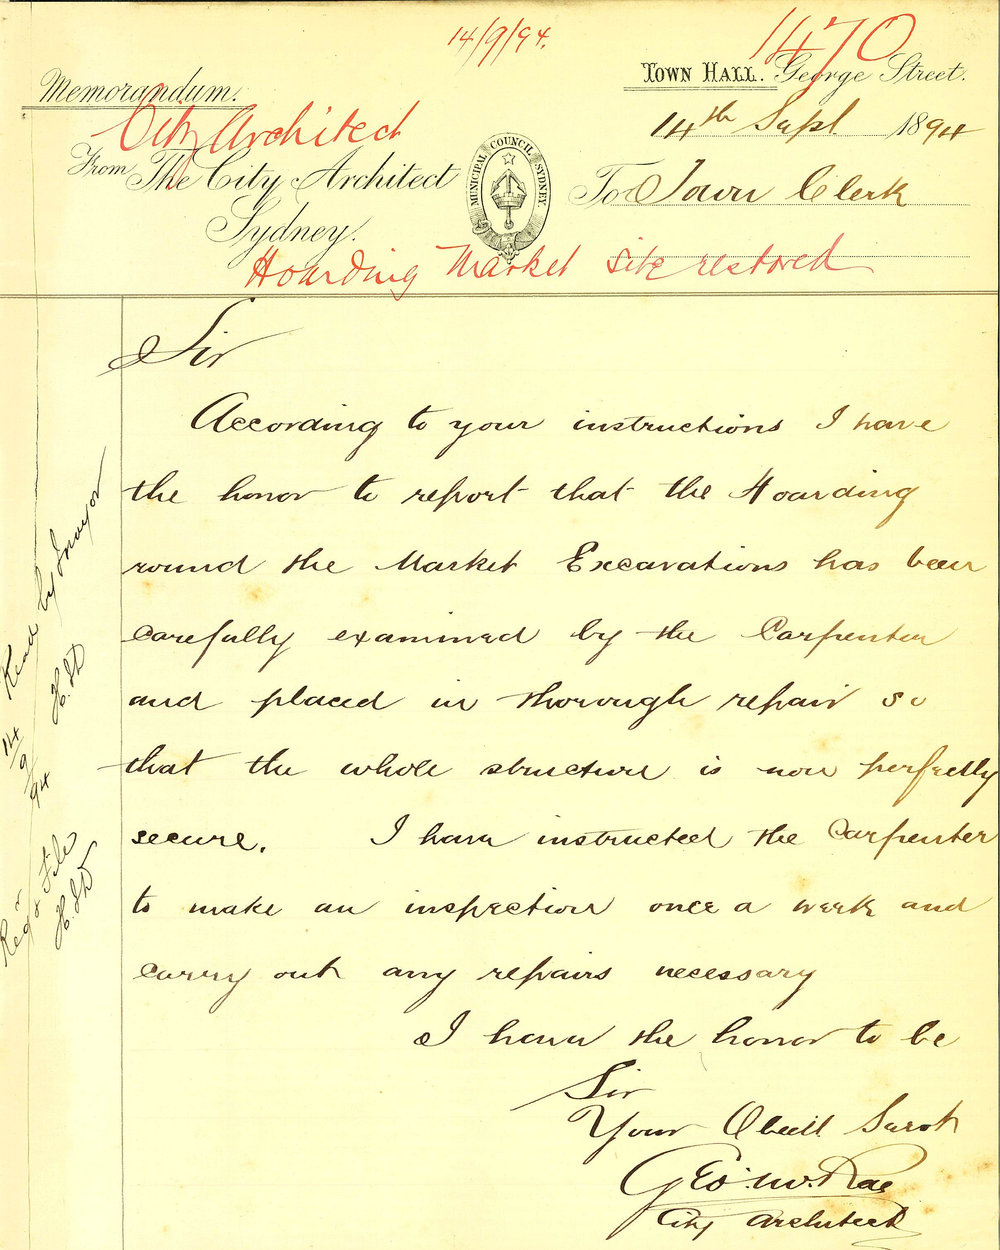 14/9/94.
1470
Memorandum.
TOWN HALL. George Street.
City Architect
14th Sept 1894
From The City Architect
Sydney.
MUNICIPAL COUNCIL SYDNEY
To Town Clerk
Hoarding Market Site restored
Sir
According to your instructions I have
the honor to report that the Hoarding
round the Market Excavations has been
carefully examined by the Carpenter
and placed in thorough repair so
that the whole structure is now perfectly
secure. I have instructed the Carpenter
to make an inspection once a week and
carry out any repairs necessary
I have the honor to be
Sir
Your Obedt Servt
Geo. W. Rae
City Architect
Read by Mayor
H.D
14/9/94
Regr & File
H.D